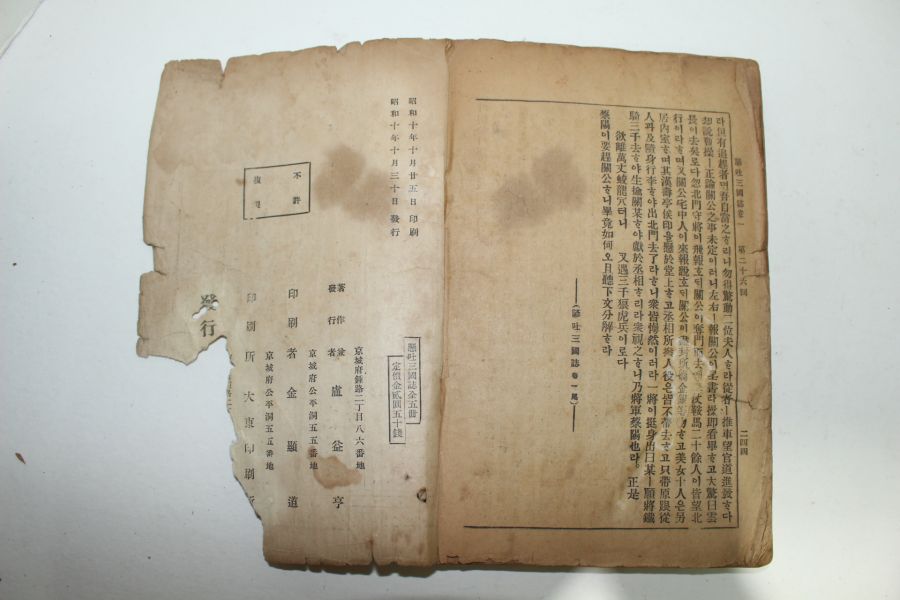 懸吐三國誌卷一 第二十六囘 二四四
라但有追趕者면吾自當之호리니勿得驚動二位夫人하라從者ㅣ推車望官道進發하다
却說曹操ㅣ正論關公之事未定이러니左右ㅣ報關公이呈書라操卽看畢하고大驚曰雲
長이去矣로다忽北門守將이飛報호되關公이奪門而去
行이라하며又關公宅中人이來報說호되關公이盡封所賜金銀等物하고美女十人은另
居內室하며其漢壽亭侯印을懸於堂上하고丞相所撥人役은皆不帶去하고只帶原跟從
人과及隨身行李하야出北門去了라하니衆皆愕然이러라一將이挺身出曰某ㅣ願將鐵
騎三千去하야生擒關某하야獻於丞相하리라衆視之하니乃將軍蔡陽也라。正是
欲離萬丈蛟龍穴터니 又遇三千狼虎兵이로다
蔡陽이要趕關公하니畢竟如何오且聽下文分解하라
(懸吐三國誌卷一尾)
懸吐三國誌全五冊
定價金貳圓五十錢
昭和十年十月廿五日 印刷
昭和十年十月三十日 發行
不許
複製
京城府鍾路二丁目八六番地
著作兼
發行者 盧益亨
京城府公平洞五五番地
印刷者 金顯道
京城府公平洞五五番地
印刷所 大東印刷所
發行